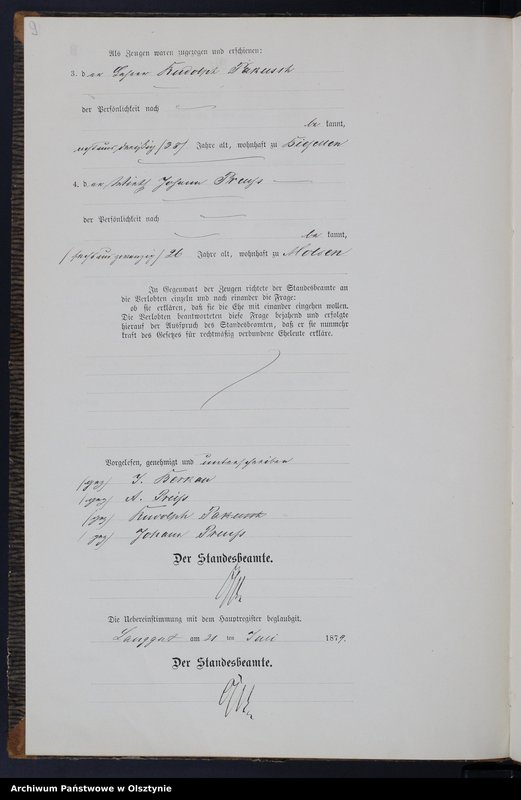 9
Als Zeugen waren zugezogen und erschienen:
3. d er Rudolph Pakusch
der Persönlichkeit nach
be kannt,
/38/ Jahre alt, wohnhaft zu
4. d er Wirth Johann Preuß
der Persönlichkeit nach
be kannt,
/ sechsundzwanzig / 26 Jahre alt, wohnhaft zu
In Gegenwart der Zeugen richtete der Standesbeamte an
die Verlobten einzeln und nach einander die Frage:
ob sie erklären, daß sie die Ehe mit einander eingehen wollen.
Die Verlobten beantworteten diese Frage bejahend und erfolgte
hierauf der Ausspruch des Standesbeamten, daß er sie nunmehr
kraft des Gesetzes für rechtmäßig verbundene Eheleute erkläre.
Vorgelesen, genehmigt und unterschrieben
/gez/ J. Berkau
/gez/ A. Preuß
/gez/ Rudolph Pakusch
/gez/ Johann Preuß
Der Standesbeamte.
Die Uebereinstimmung mit dem Hauptregister beglaubgit.
Langgut am 21 ten Juni 1879.
Der Standesbeamte.
Archiwum Państwowe w Olsztynie